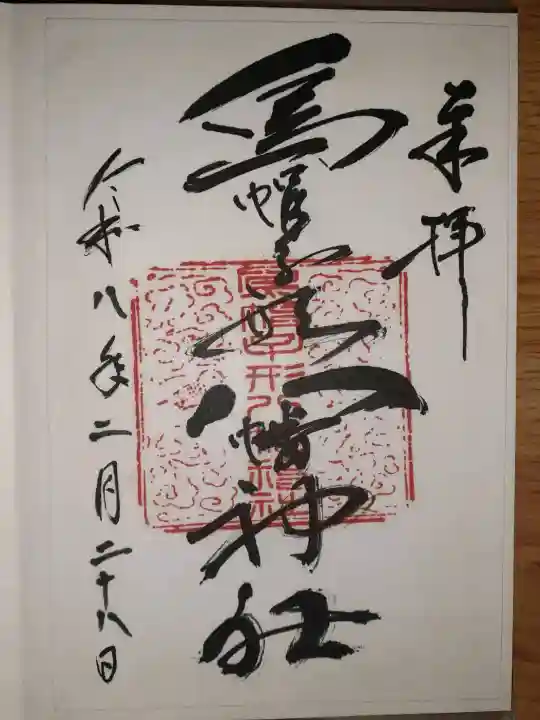 奉拝
烏帽子形八幡神社
烏帽子形八幡神社
令和八年二月二十八日